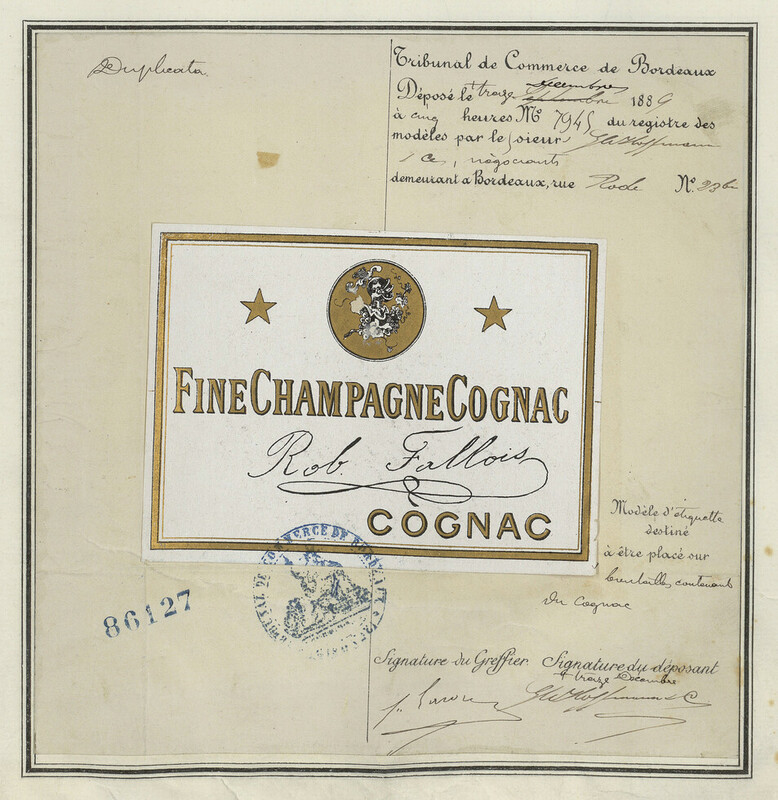 Duplicata
Tribunal de Commerce de Bordeaux
décembre
Déposé le treize septembre 1889
à cinq heures No 7945 du registre des
modèles par le sieur GW Hoffmann
& Cie, négociants
demeurant à Bordeaux, rue Rode No. 23 bis
FINE CHAMPAGNE COGNAC
Rob. Fallois
COGNAC
Modèle d'étiquette
destiné
à être placé sur
bouteilles contenant
du Cognac
TRIBUNAL DE COMMERCE DE BORDEAUX
86127
Signature du Greffier. Signature du déposant
treize Décembre
Hoffmann & C